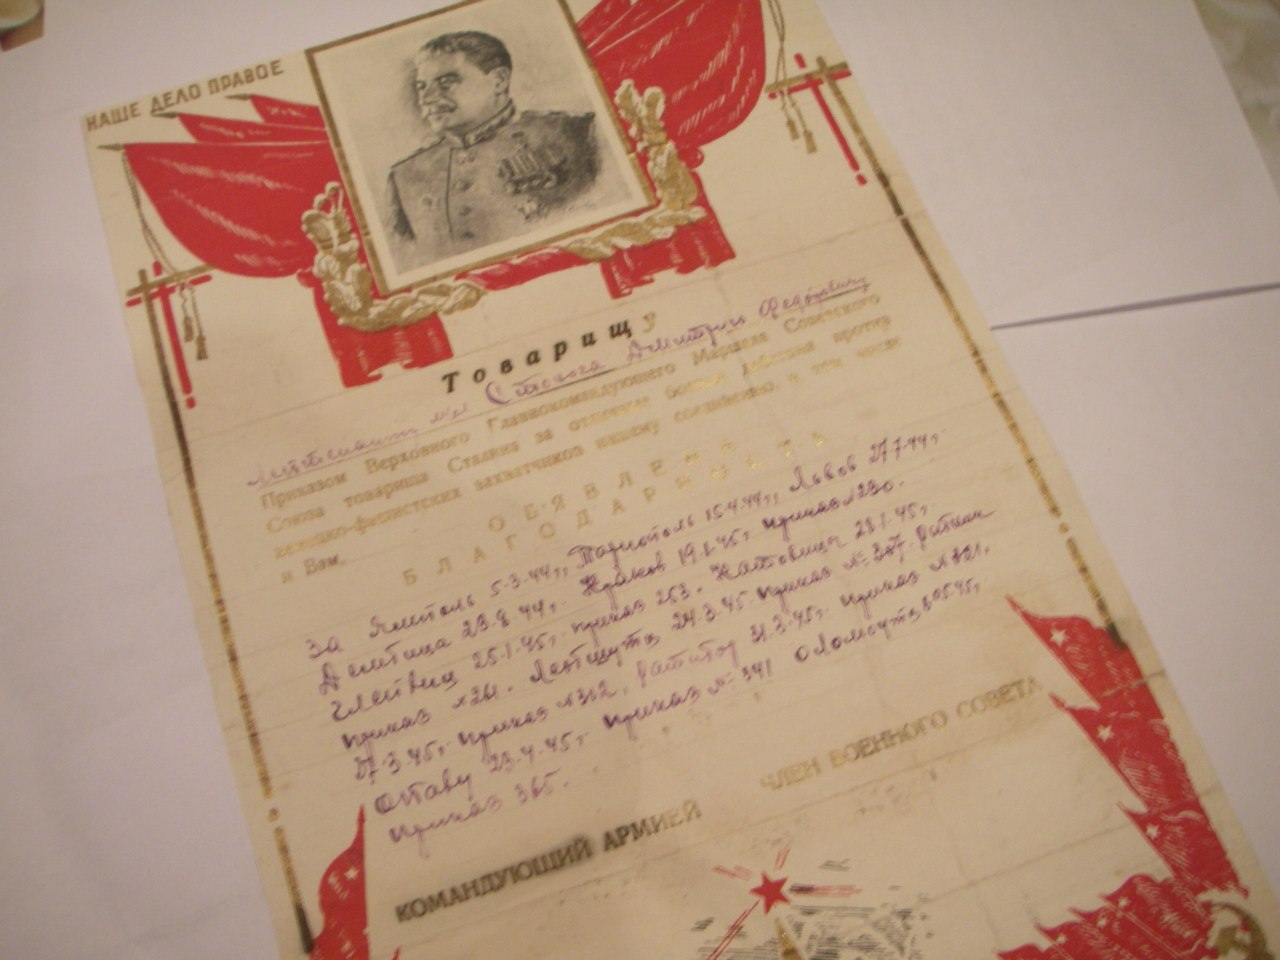 НАШЕ ДЕЛО ПРАВОЕ
Товарищу
Дмитрию Федоровичу
Приказом Верховного Главнокомандующего Маршала Советского
Союза товарища Сталина за отличные боевые действия против
немецко-фашистских захватчиков нашему соединению, в том числе
и Вам,
ОБ'ЯВЛЕНА
БЛАГОДАРНОСТЬ
за Ямполь 5-3-44г, Тарнополь 15-4-44г, Львов 27-7-44г,
Дембица 23-8-44г. Краков 19-1-45г, приказ №230.
25-1-45г, приказ 253. Катовицы 28-1-45г,
приказ №261. 24-3-45 приказ № 307.
27-3-45г, приказ №312, 31-3-45г, приказ №321.
Опаву 23-4-45г. приказ № 341
приказ 365.
КОМАНДУЮЩИЙ АРМИЕЙ
ЧЛЕН ВОЕННОГО СОВЕТА